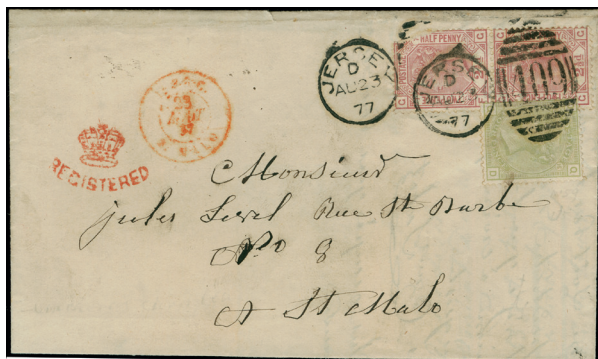 JERSEY
D
AU 23
77
HALF PENNY
JERSEY
D
77
409
REGISTERED
ST MALO
Monsieur
Jules Rue St Barbe
No 8
A St Malo